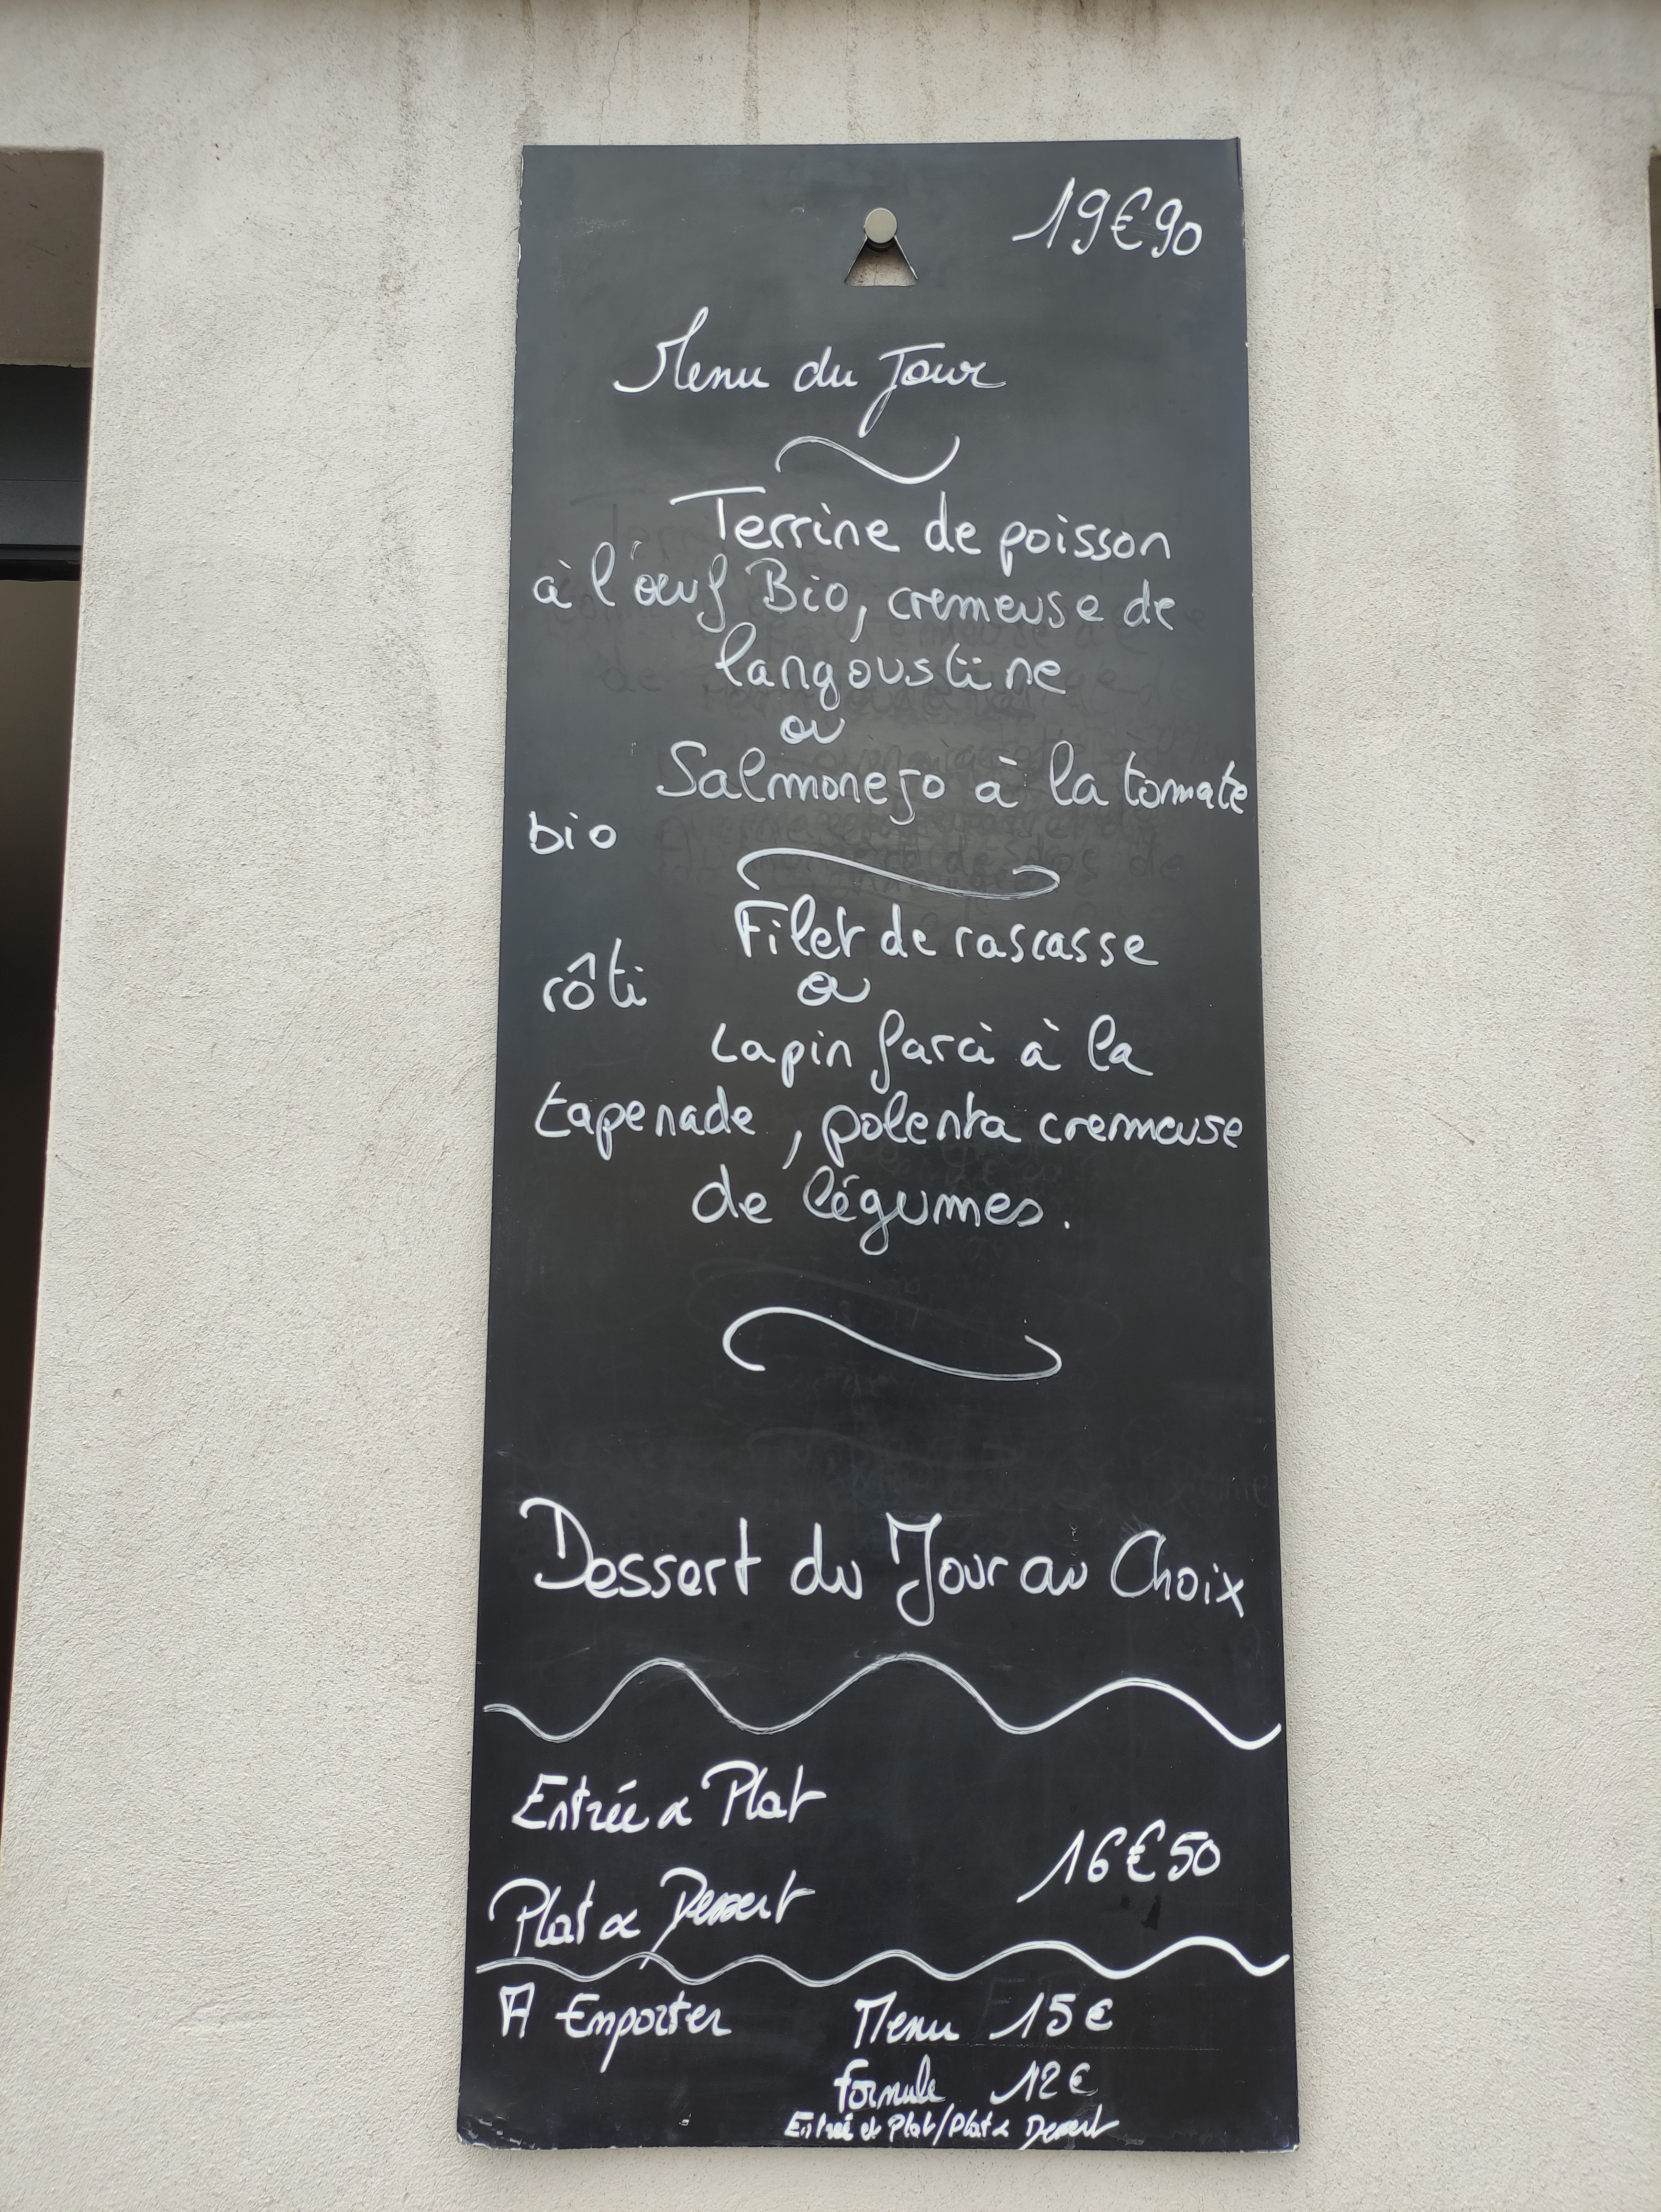 19€90
Menu du Jour
Terrine de poisson
à l'œuf Bio, cremeuse de
langoustine
ou
Salmorejo à la tomate
bio
Filet de rascasse
rôti ou
Lapin farci à la
tapenade, polenta cremeuse
de légumes.
Dessert du Jour au Choix
Entrée & Plat
16€50
Plat & Dessert
A Emporter Menu 15€
formule 12€
Entrée et Plat/Plat & Dessert